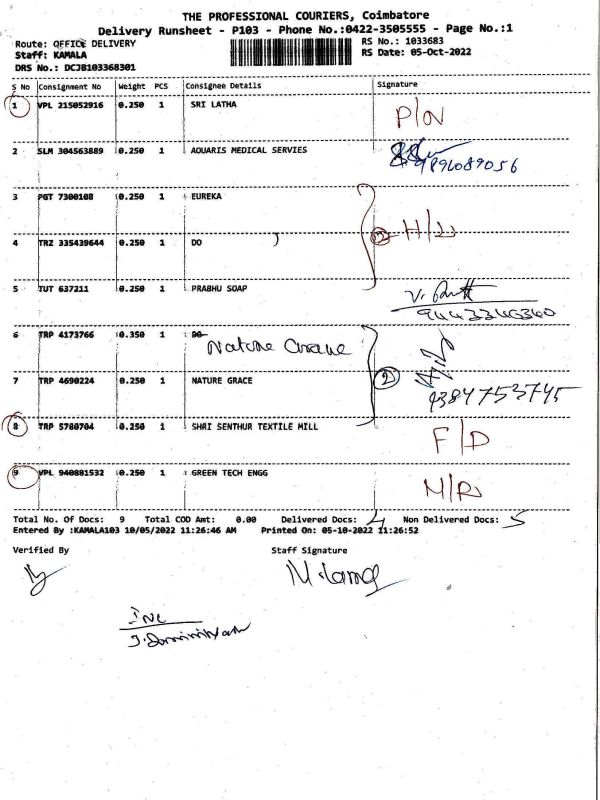 THE PROFESSIONAL COURIERS, Coimbatore
Delivery Runsheet - P103 - Phone No.:0422-3505555 - Page No.:1
Route: OFFICE DELIVERY RS No.: 1033683
Staff: KAMALA RS Date: 05-Oct-2022
DRS No.: DCJB103368301
S No Consignment No Weight PCS Consignee Details Signature
1 VPL 215052916 0.250 1 SRI LATHA P/N
2 SLM 304563889 0.250 1 AQUARIS MEDICAL SERVIES
3 PGT 7300108 0.250 1 EUREKA
4 TRZ 335439644 0.250 1 DO
5 TUT 637211 0.250 1 PRABHU SOAP
6 TRP 4173766 0.350 1 DO
7 TRP 4690224 0.250 1 NATURE GRACE 2 9384753745
8 TRP 5780704 0.250 1 SHRI SENTHUR TEXTILE MILL F/D
9 VPL 940881532 0.250 1 GREEN TECH ENGG
Total No. Of Docs: 9 Total COD Amt: 0.00 Delivered Docs: 4 Non Delivered Docs: 5
Entered By :KAMALA103 10/05/2022 11:26:46 AM Printed On: 05-10-2022 11:26:52
Verified By Staff Signature